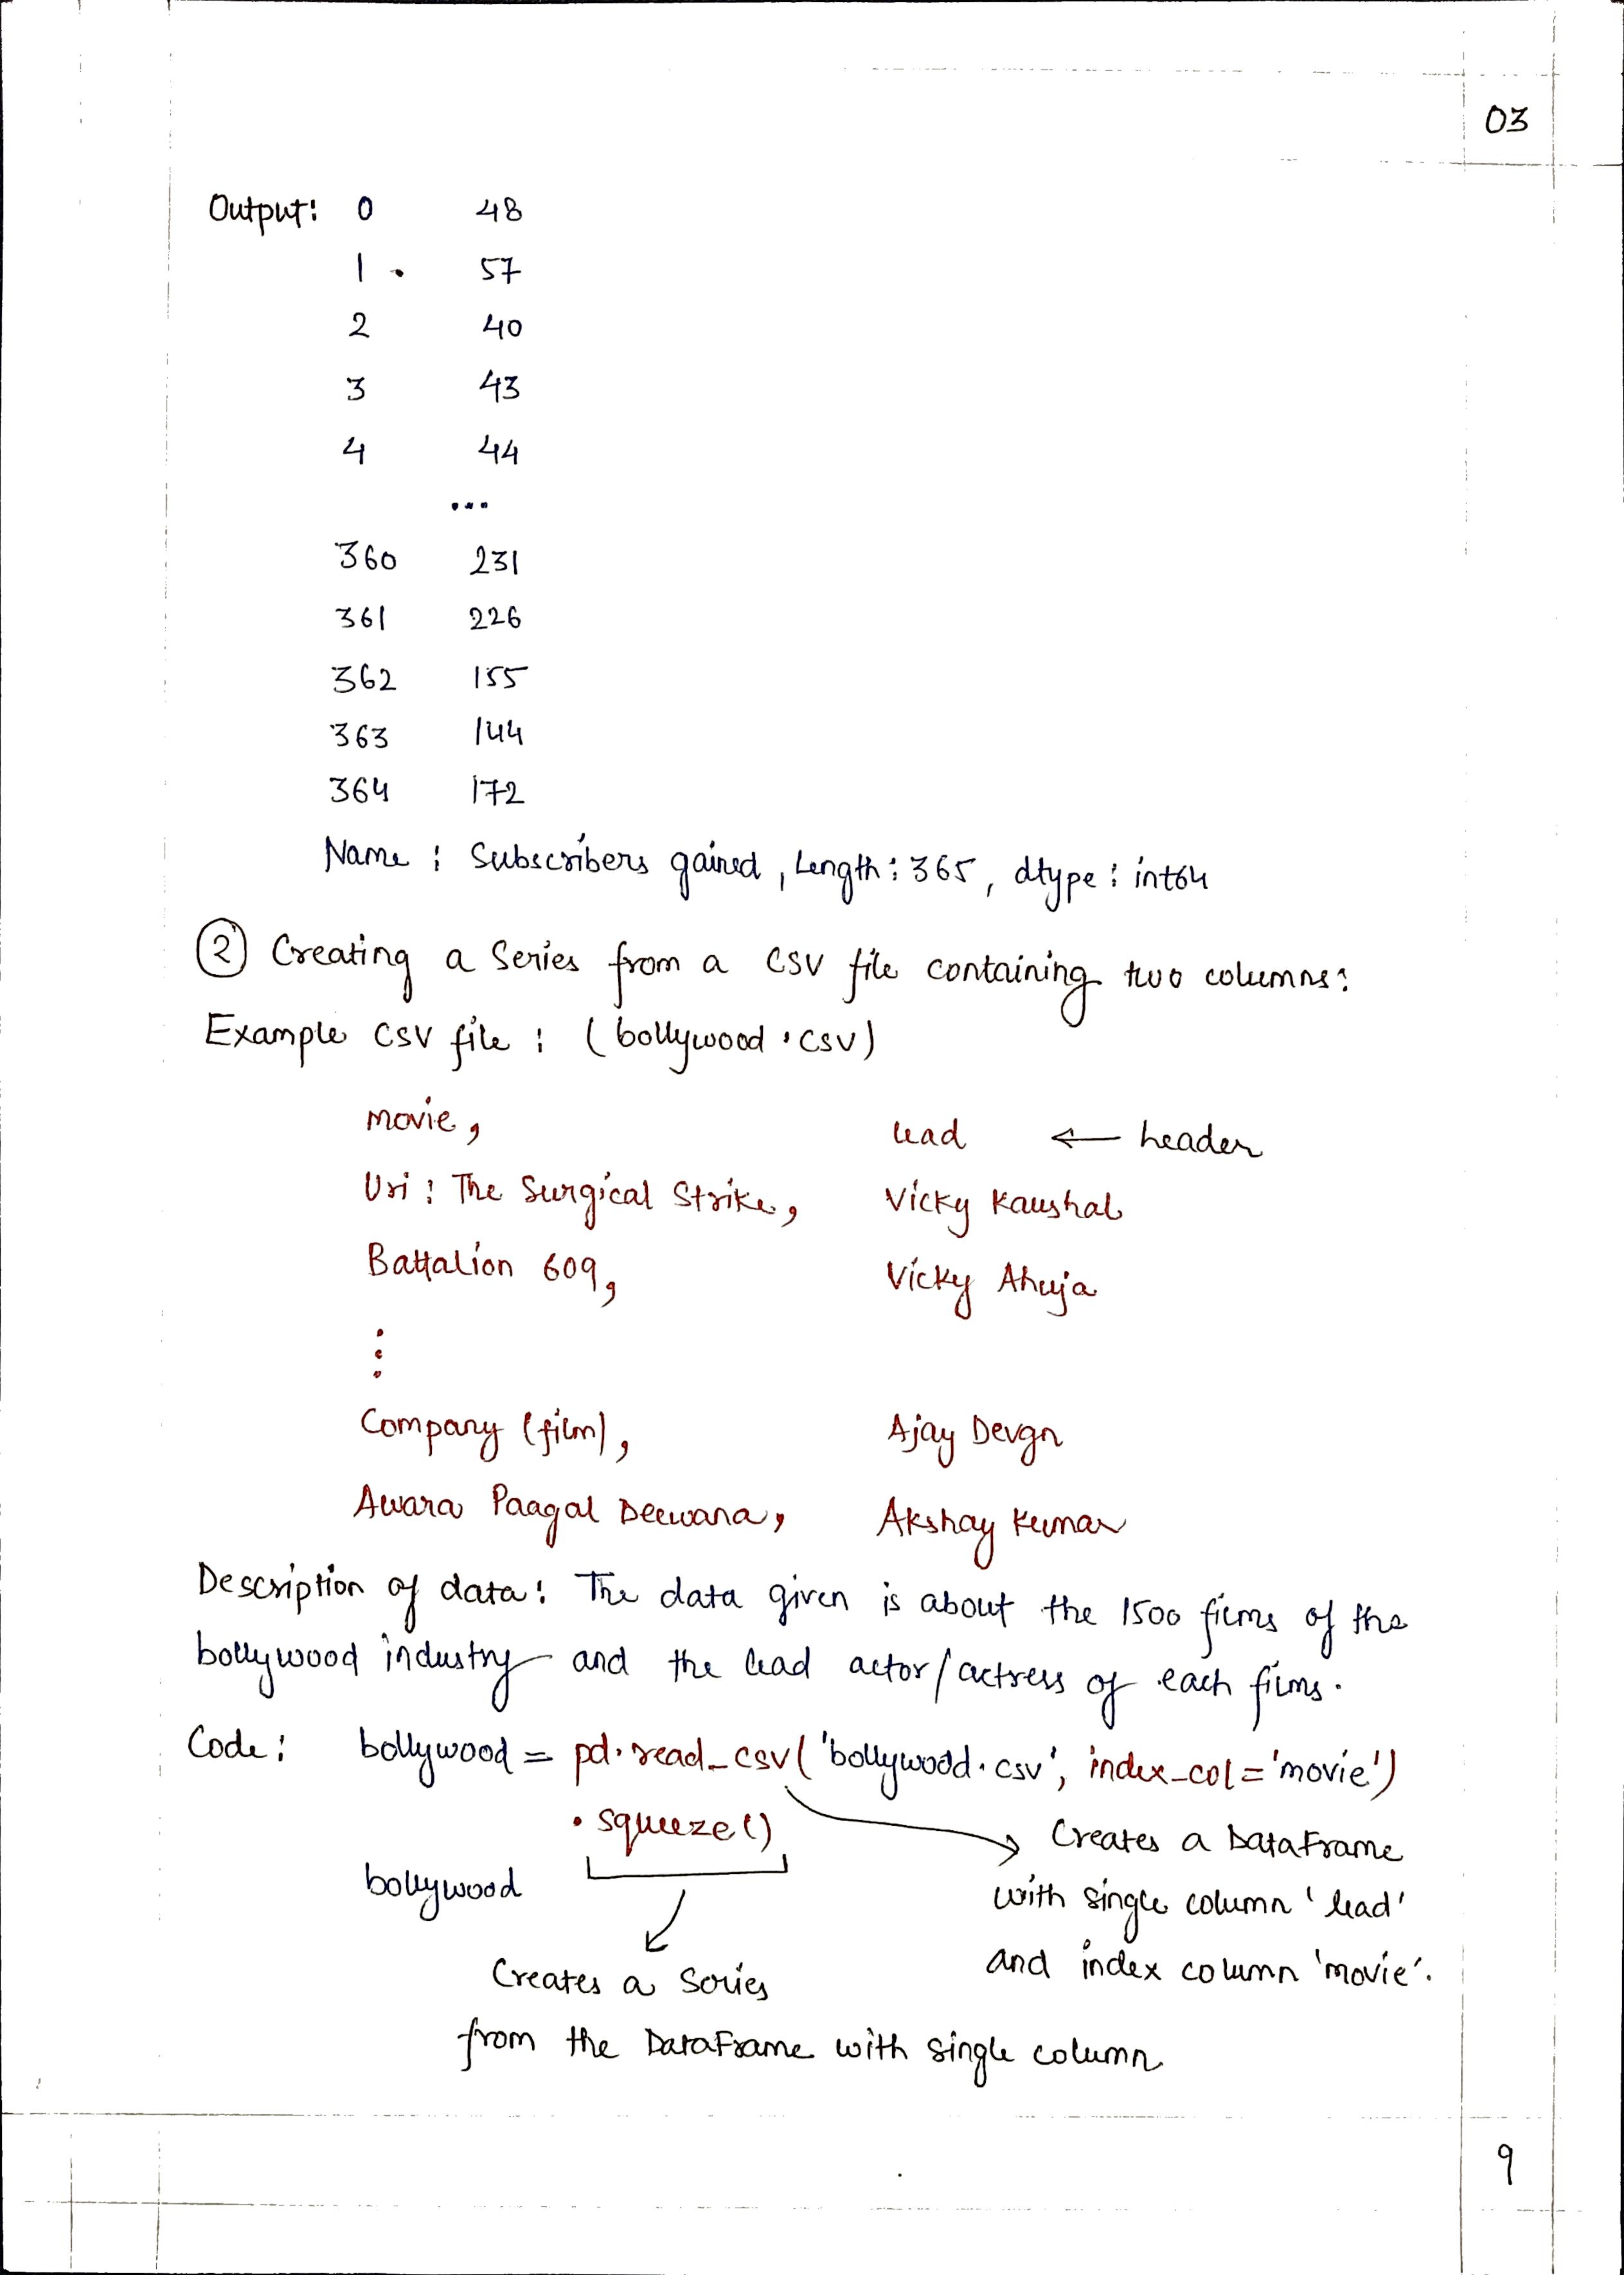 03
Output: 0 48
1 57
2 40
3 43
4 44
...
360 231
361 226
362 155
363 144
364 172
Name : Subscribers gained, Length: 365, dtype: int64
② Creating a Series from a CSV file containing two columns:
Example CSV file : (bollywood.csv)
movie, lead ← header
Uri : The Surgical Strike, Vicky Kaushal
Battalion 609, Vicky Ahuja
⋮
Company (film), Ajay Devgn
Awara Paagal Deewana, Akshay Kumar
Description of data: The data given is about the 1500 films of the
bollywood industry and the lead actor/actress of each films.
Code: bollywood = pd.read_csv('bollywood.csv', index_col='movie')
.squeeze()
→ Creates a DataFrame
with single column 'lead'
and index column 'movie'.
bollywood
Creates a Series
from the DataFrame with single column
9